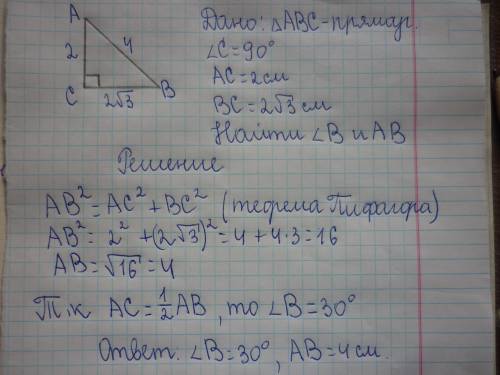 A
2
4
C
2√3
B
Дано: △ABC-прямоуг.
∠C=90°
AC=2см
BC=2√3 см
Найти ∠B и AB
Решение
AB²=AC²+BC² (теорема Пифагора)
AB²=2²+(2√3)²=4+4·3=16
AB=√16=4
Т.к AC=½AB, то ∠B=30°
Ответ. ∠B=30°, AB=4см.